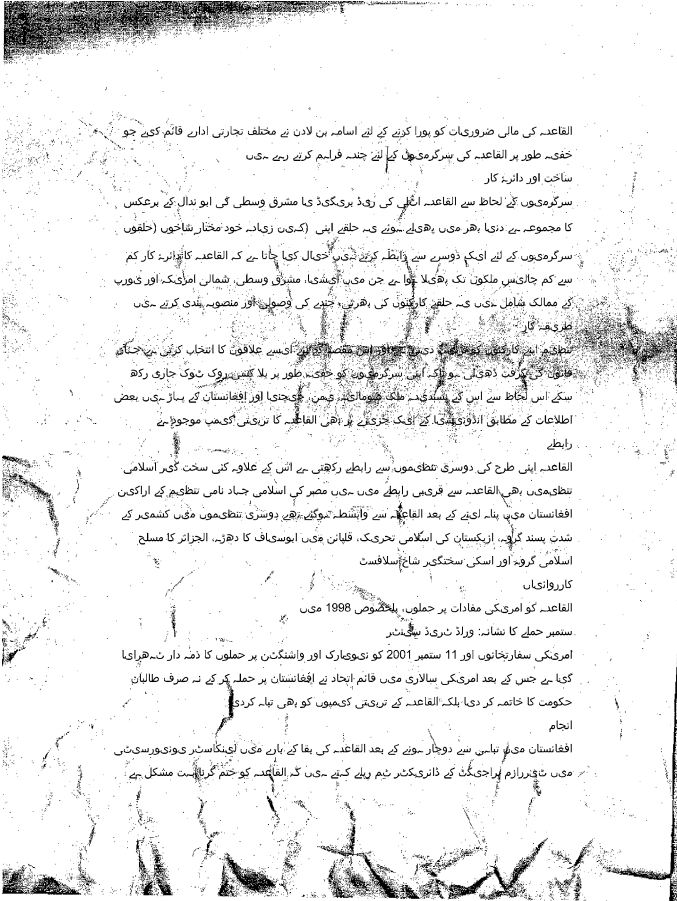 القاعدہ کی مالی ضروریات کو پورا کرنے کے لئے اسامہ بن لادن نے مختلف تجارتی ادارے قائم کیے جو
خفیہ طور پر القاعدہ کی سرگرمیوں کے لئے چندہ فراہم کرتے رہے ہیں
ساخت اور دائرۂ کار
سرگرمیوں کے لحاظ سے القاعدہ اٹلی کی ریڈ بریگیڈ یا مشرق وسطی کی ابو ندال کے برعکس
کا مجموعہ ہے دنیا بھر میں پھیلے ہوئے یہ حلقے اپنی (کہیں زیادہ خود مختار شاخوں (حلقوں
سرگرمیوں کے لئے ایک دوسرے سے رابطہ کرتے ہیں خیال کیا جاتا ہے کہ القاعدہ کا دائرۂ کار کم
سے کم چالیس ملکوں تک پھیلا ہوا ہے جن میں ایشیا، مشرق وسطی، شمالی امریکہ اور یورپ
کے ممالک شامل ہیں یہ حلقے کارکنوں کی بھرتی، چندے کی وصولی اور منصوبہ بندی کرتے ہیں
طریقہ کار
تنظیم اپنے کارکنوں کو تربیت دیتی ہے اور اس مقصد کے لئے ایسے علاقوں کا انتخاب کرتی ہے جہاں
قانون کی گرفت ڈھیلی ہو تاکہ اپنی سرگرمیوں کو خفیہ طور پر بلا کسی روک ٹوک جاری رکھ
سکے اس لحاظ سے اس کے پسندیدہ ملک صومالیہ، یمن، چیچنیا اور افغانستان کے پہاڑ ہیں بعض
اطلاعات کے مطابق انڈونیشیا کے ایک جزیرے پر بھی القاعدہ کا تربیتی کیمپ موجود ہے
رابطے
القاعدہ اپنی طرح کی دوسری تنظیموں سے رابطے رکھتی ہے اس کے علاوہ کئی سخت گیر اسلامی
تنظیمیں بھی القاعدہ سے قریبی رابطے میں ہیں مصر کی اسلامی جہاد نامی تنظیم کے اراکین
افغانستان میں پناہ لینے کے بعد القاعدہ سے وابستہ ہوگئے تھے دوسری تنظیموں میں کشمیر کے
شدت پسند گروہ، ازبکستان کی اسلامی تحریک، فلپائن میں ابوسیاف کا دھڑہ، الجزائر کا مسلح
اسلامی گروہ اور اسکی سختگیر شاخ سلافسٹ
کارروائیاں
القاعدہ کو امریکی مفادات پر حملوں، بلخصوص 1998 میں
ستمبر حملے کا نشانہ: ورلڈ ٹریڈ سینٹر
امریکی سفارتخانوں اور 11 ستمبر 2001 کو نیویارک اور واشنگٹن پر حملوں کا ذمہ دار ٹھہرایا
گیا ہے جس کے بعد امریکی سالاری میں قائم اتحاد نے افغانستان پر حملہ کر کے نہ صرف طالبان
حکومت کا خاتمہ کر دیا بلکہ القاعدہ کے تربیتی کیمپوں کو بھی تباہ کردی
انجام
افغانستان میں تباہی سے دوچار ہونے کے بعد القاعدہ کی بقا کے بارے میں لینکاسٹر یونیورسیٹی
میں ٹیررازم پراجیکٹ کے ڈائریکٹر ٹیم ریلے کہتے ہیں کہ القاعدہ کو ختم کرنا بہت مشکل ہے